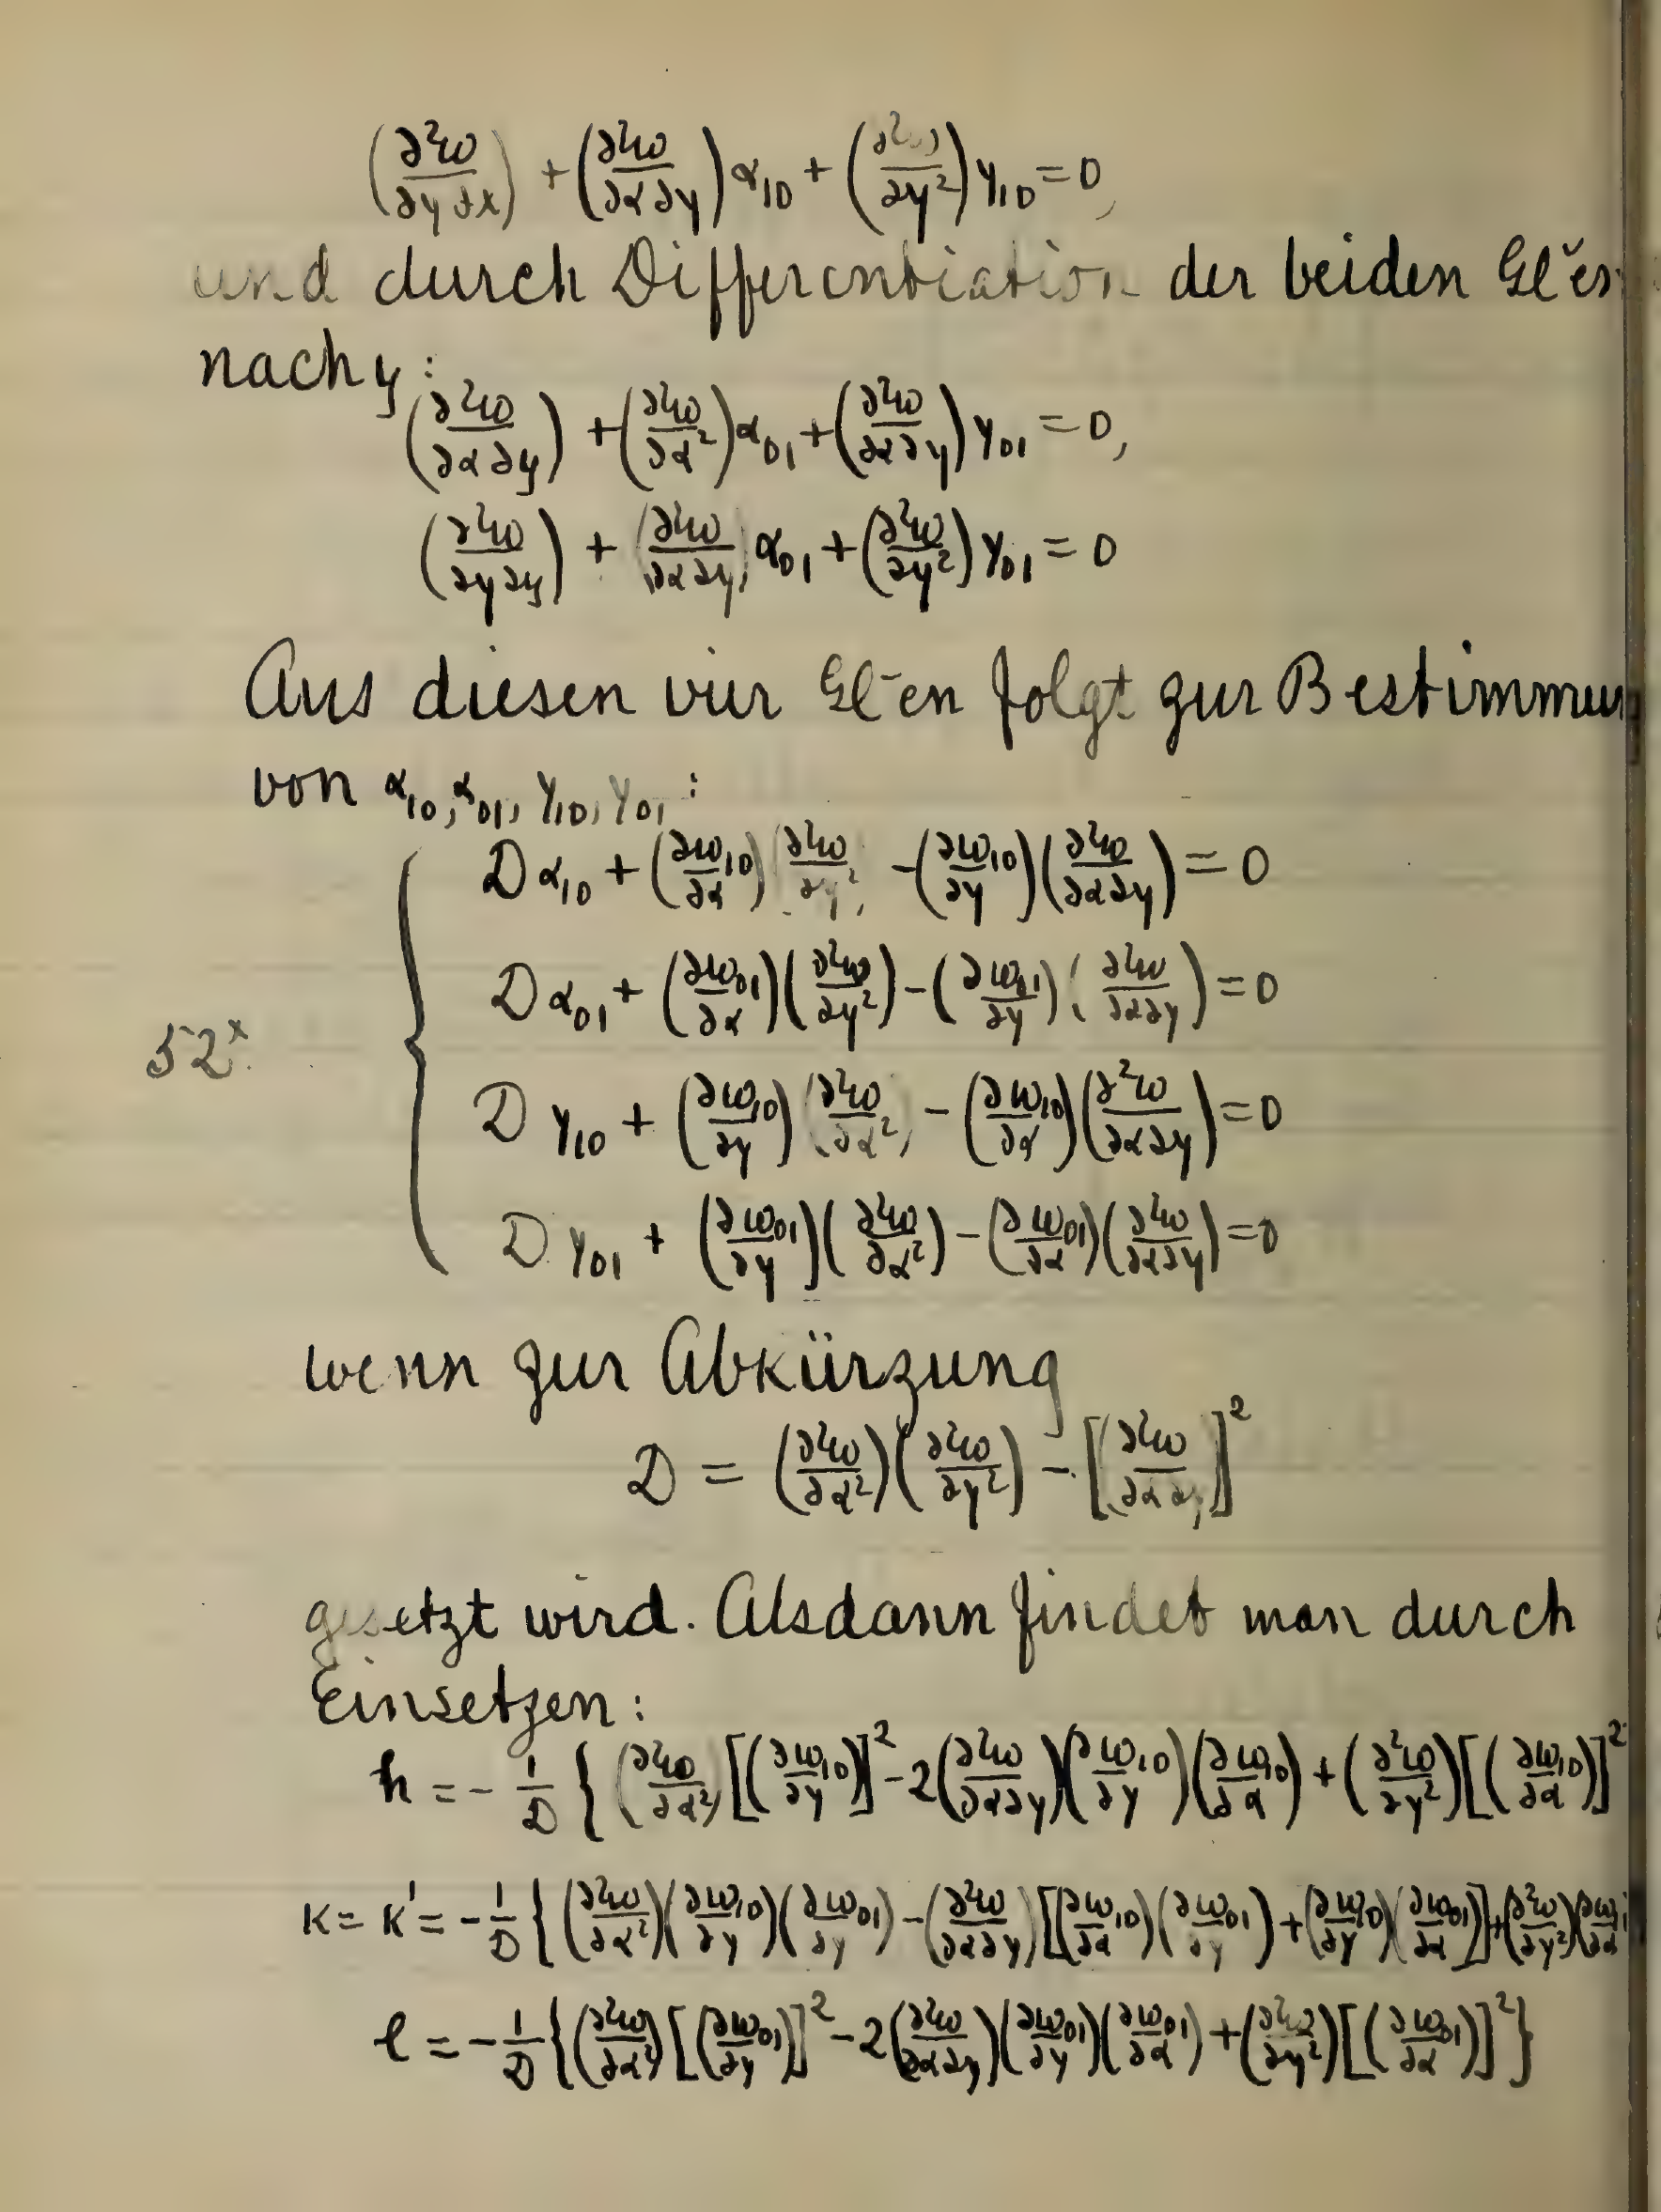 (∂²ω/∂γ∂x) + (∂²ω/∂α∂γ) α₁₀ + (∂²ω/∂γ²) γ₁₀ = 0,
und durch Differentiation der beiden Gl̆en
nach y:
(∂²ω/∂α∂y) + (∂²ω/∂α²) α₀₁ + (∂²ω/∂α∂γ) γ₀₁ = 0,
(∂²ω/∂γ∂y) + (∂²ω/∂α∂γ) α₀₁ + (∂²ω/∂γ²) γ₀₁ = 0
Aus diesen vier Gl-en folgt zur Bestimmun
von α₁₀, α₀₁, γ₁₀, γ₀₁:
D α₁₀ + (∂ω₁₀/∂α)(∂²ω/∂γ²) - (∂ω₁₀/∂γ)(∂²ω/∂α∂γ) = 0
D α₀₁ + (∂ω₀₁/∂α)(∂²ω/∂γ²) - (∂ω₀₁/∂γ)(∂²ω/∂α∂γ) = 0
52ˣ.
D γ₁₀ + (∂ω₁₀/∂γ)(∂²ω/∂α²) - (∂ω₁₀/∂α)(∂²ω/∂α∂γ) = 0
D γ₀₁ + (∂ω₀₁/∂γ)(∂²ω/∂α²) - (∂ω₀₁/∂α)(∂²ω/∂α∂γ) = 0
wenn zur Abkürzung
D = (∂²ω/∂α²)(∂²ω/∂γ²) - [(∂²ω/∂α∂γ)]²
gesetzt wird. Alsdann findet man durch
Einsetzen:
h = - 1/D {(∂²ω/∂α²)[(∂ω₁₀/∂γ)]² - 2(∂²ω/∂α∂γ)(∂ω₁₀/∂γ)(∂ω₁₀/∂α) + (∂²ω/∂γ²)[(∂ω₁₀/∂α)]²
K = K' = - 1/D {(∂²ω/∂α²)(∂ω₁₀/∂γ)(∂ω₀₁/∂γ) - (∂²ω/∂α∂γ)[(∂ω₁₀/∂α)(∂ω₀₁/∂γ) + (∂ω₁₀/∂γ)(∂ω₀₁/∂α)] + (∂²ω/∂γ²)(∂ω₁/∂α
l = - 1/D {(∂²ω/∂α²)[(∂ω₀₁/∂γ)]² - 2(∂²ω/∂α∂γ)(∂ω₀₁/∂γ)(∂ω₀₁/∂α) + (∂²ω/∂γ²)[(∂ω₀₁/∂α)]²}